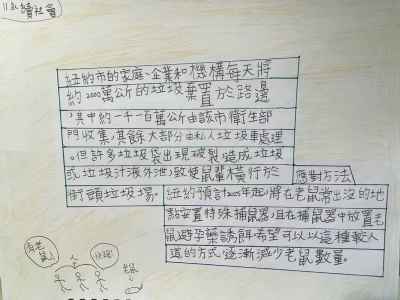 永續社會
紐約市的家庭、企業和機構每天將
約2000萬公斤的垃圾棄置於路邊
,其中約一千一百萬公由該市衛生部
門收集,其餘大部分由私人垃圾車處理
。但許多垃圾袋出現破裂造成垃圾
或垃圾汁液外泄,致使鼠輩橫行於
街頭垃圾場。
應對方法
紐約預計2025年起,將在老鼠常出沒的地
點安置特殊捕鼠器,且在捕鼠器中放置老
鼠避孕藥誘餌,希望可以以這種較人
道的方式逐漸減少老鼠數量。
有老鼠!
快跑
老鼠